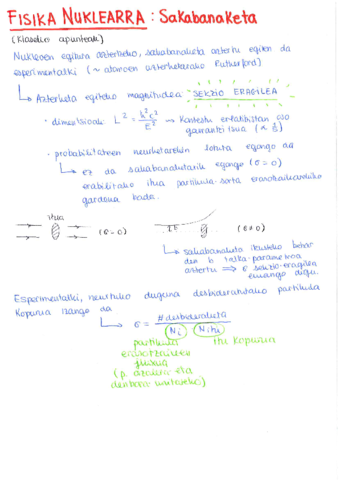 FISIKA NUKLEARRA : Sakabanaketa
(Klaseko apunteak)
Nukleoen egitura aztertzeko, sakabanaketa aztertu egiten da
esperimentalki (~ atomoen azterketarako Rutherford)
↳ Azterketa egiteko magnitudea: SEKZIO ERAGILEA
· dimentsioak L² = ħ²c²/E² → Kontestu erlatibistan oso garrantzitsua (∝ 1/E)
· probabilitateen neurketarekin lotuta egongo da
↳ ez da sakabanaturik egongo (σ = 0)
erabilitako itua partikula-sorta erasotzailearekiko
gardena bada.
itua
(σ = 0)
(σ ≠ 0)
↳ sakabanaketa ikusteko behar
den b talka-parametroa
aztertu ⇒ σ sekzio-eragilea
emango digu.
Esperimentalki, neurtuko duguna desbideratutako partikula
kopurua izango da
↳ σ = #desbideraketa / (Ni · Nitu)
partikula
erasotzaileen
fluxua
(p. azalera eta
denbora unitateko)
itu kopurua